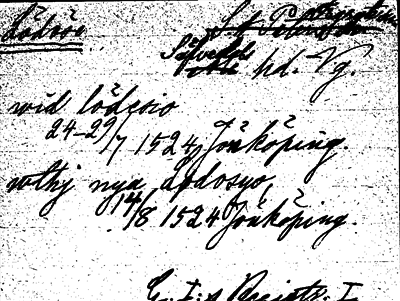 Lödöse
Sävedals hd. Vg.
wid lödesio
24-29/7 1524, Jönköping.
wthj nya lödosyo,
14/8 1524 Jönköping.
G. I:s Registr. I